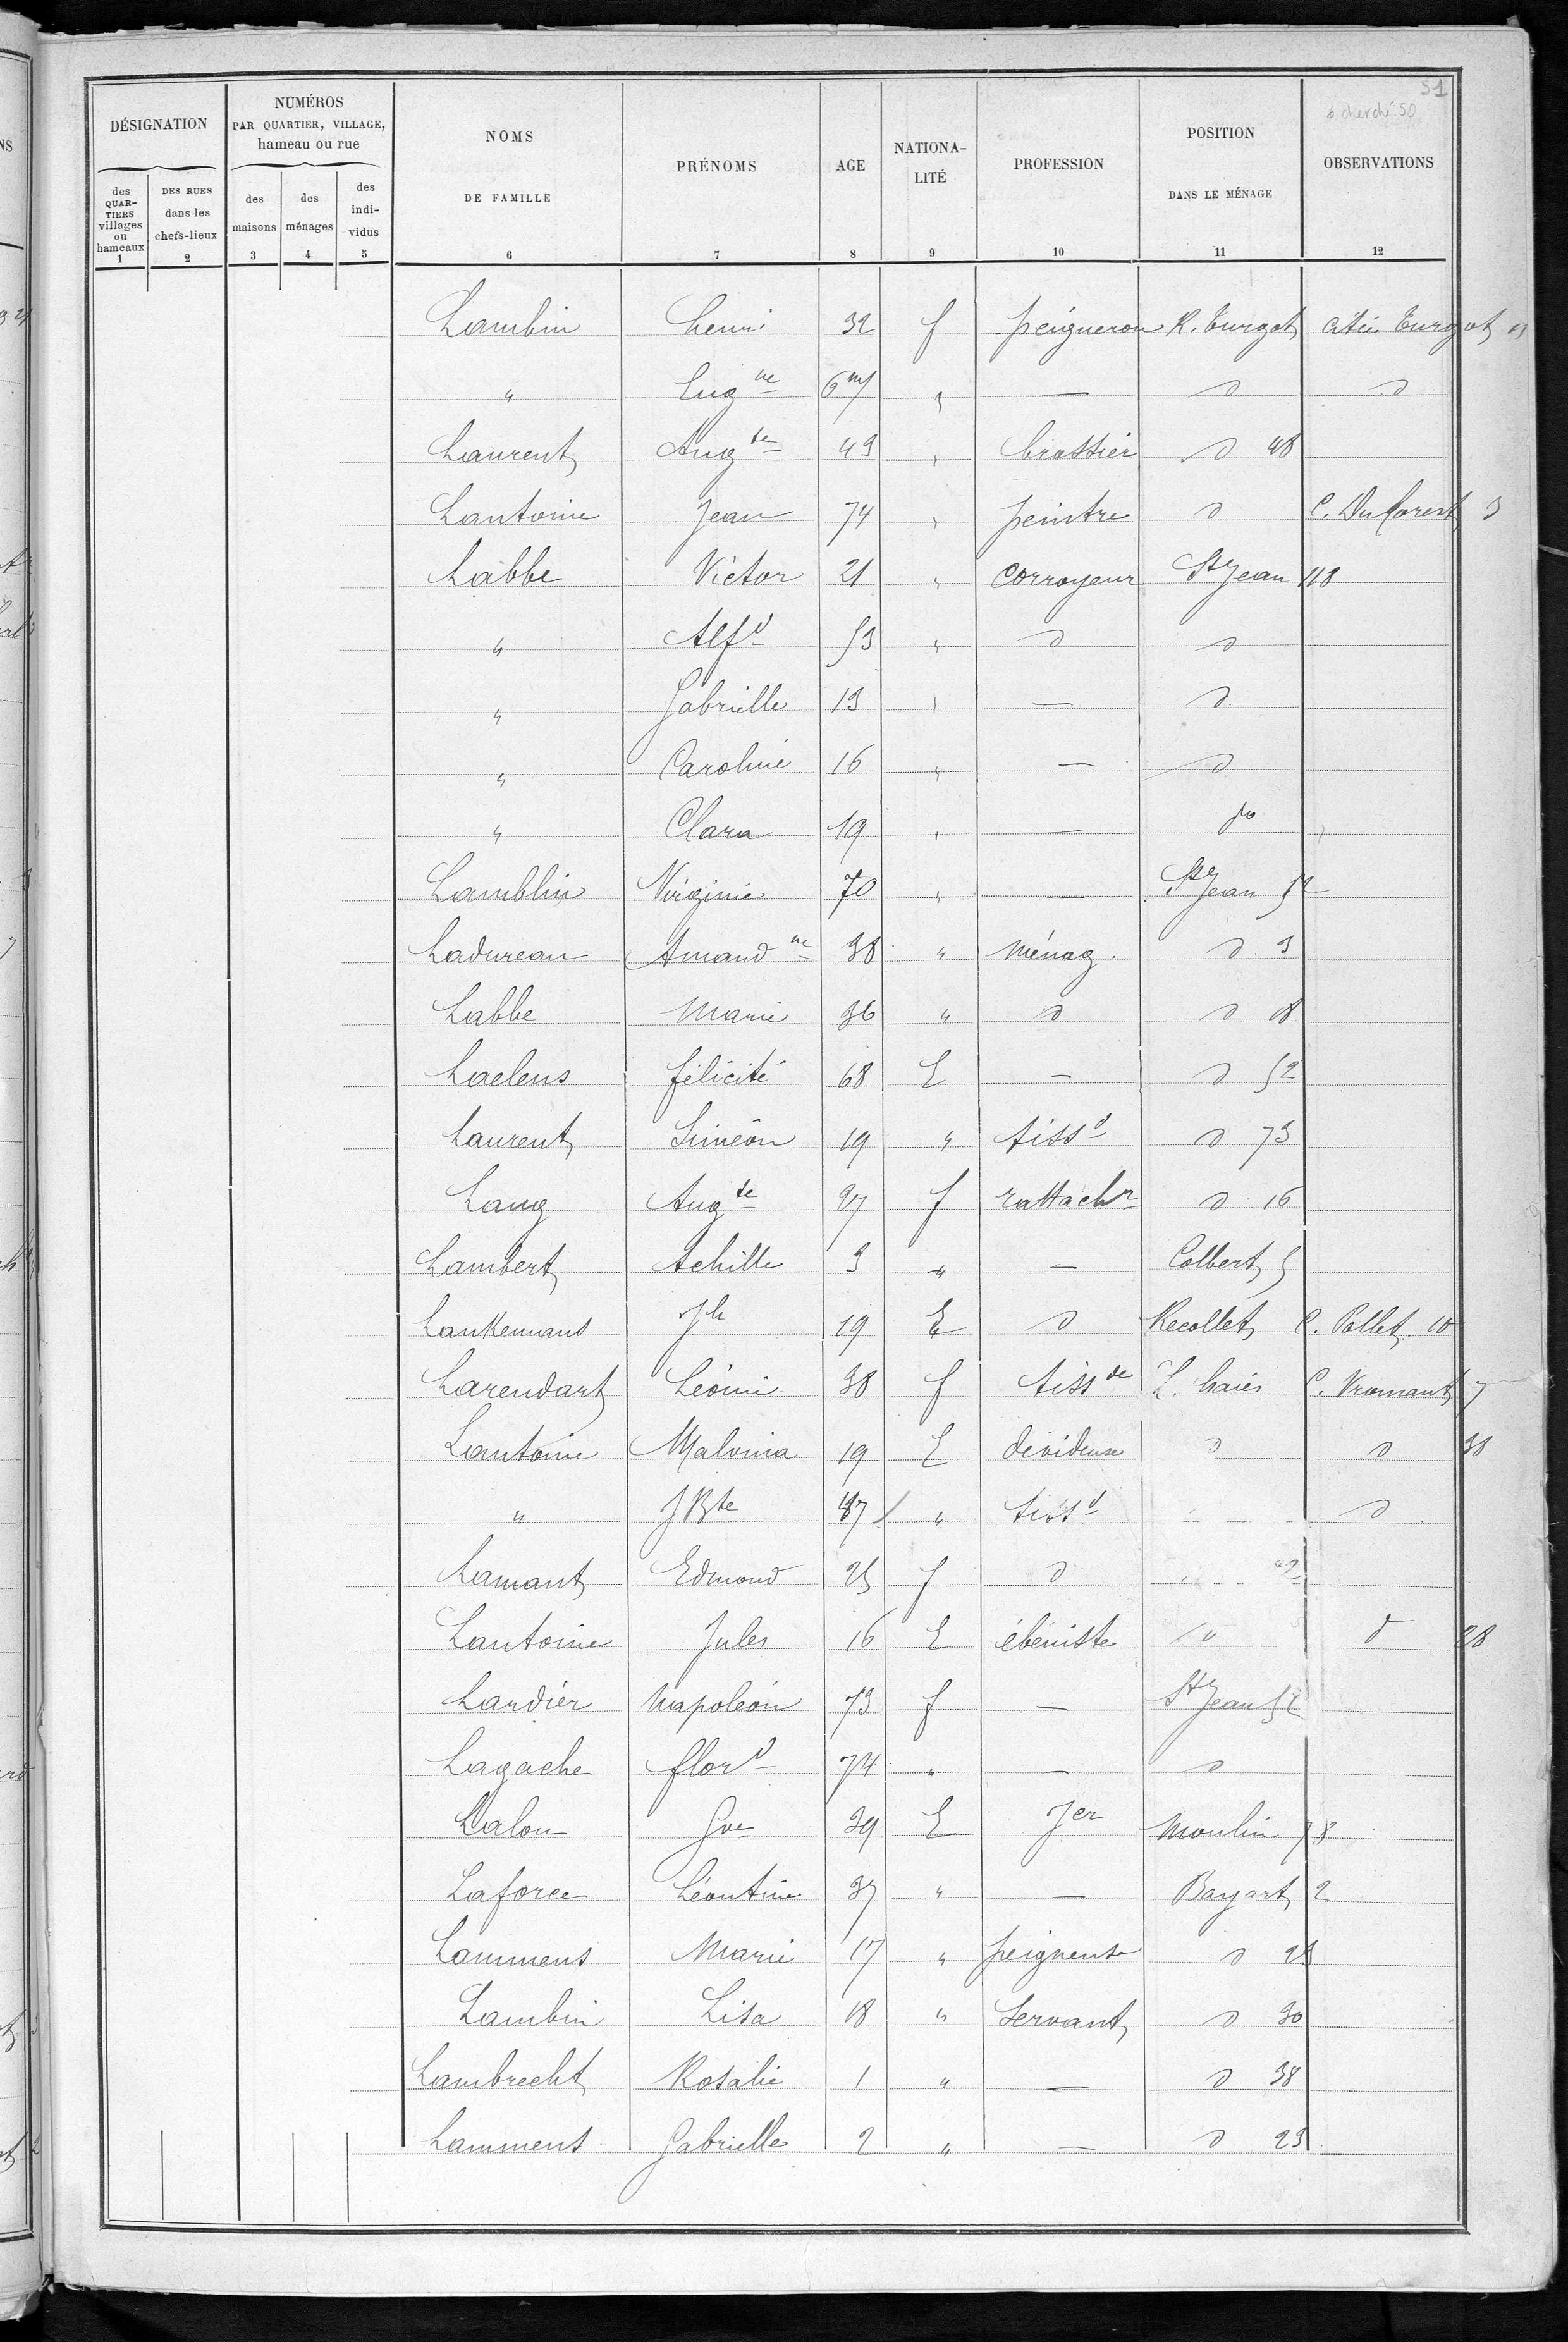 51
DÉSIGNATION NUMÉROS PAR QUARTIER, VILLAGE, hameau ou rue NOMS DE FAMILLE PRÉNOMS AGE NATIONA-LITÉ PROFESSION POSITION DANS LE MÉNAGE OBSERVATIONS
des QUAR-TIERS villages ou hameaux DES RUES dans les chefs-lieux des maisons des ménages des indi-vidus
1 2 3 4 5 6 7 8 9 10 11 12
Lambin henri 32 f peigneron R. Turgot cité Turgot
" Eug ne 6 m " — d d
Laurent Aug te 49 " brossier d 48
Lantoine Jean 74 " peintre d C. Duforest 3
Labbe Victor 21 " corroyeur St Jean 118
" Alf d 53 " d d
" Gabrielle 13 " — d
" Caroline 16 " — d
" Clara 19 " — do
Lamblin Virginie 70 " — St Jean 52
Ladureau Amand ne 38 " ménag. d 3
Labbe Marie 36 " d d 18
Laelens félicité 68 E — d 52
Laurent Siméon 19 " tiss d d 73
Lang Aug te 27 f rattachr d 16
Lambert Achille 3 " — Colbert 5
Lankemans Jh 19 E d Recollet C. Pollet 10
Larendart Léonie 38 f tiss de L. haies C. Vromant 7
Lantoine Malvina 19 E devideuse d d 30
" JBte 47 " tiss d d
Lamant Edmond 25 f d
Lantoine Jules 16 E ébéniste d 28
Lardier Napoléon 73 f — St Jean 52
Lagache flor d 74 " — d
Lalou Gve 39 E Jer Moulin 78
Laforce Léontine 37 " — Bayart 2
Lammens Marie 17 " peigneuse d 23
Lambin Lisa 18 " Servant d 30
Lambrecht Rosalie 1 " — d 38
Lammens Gabrielle 2 " — d 23